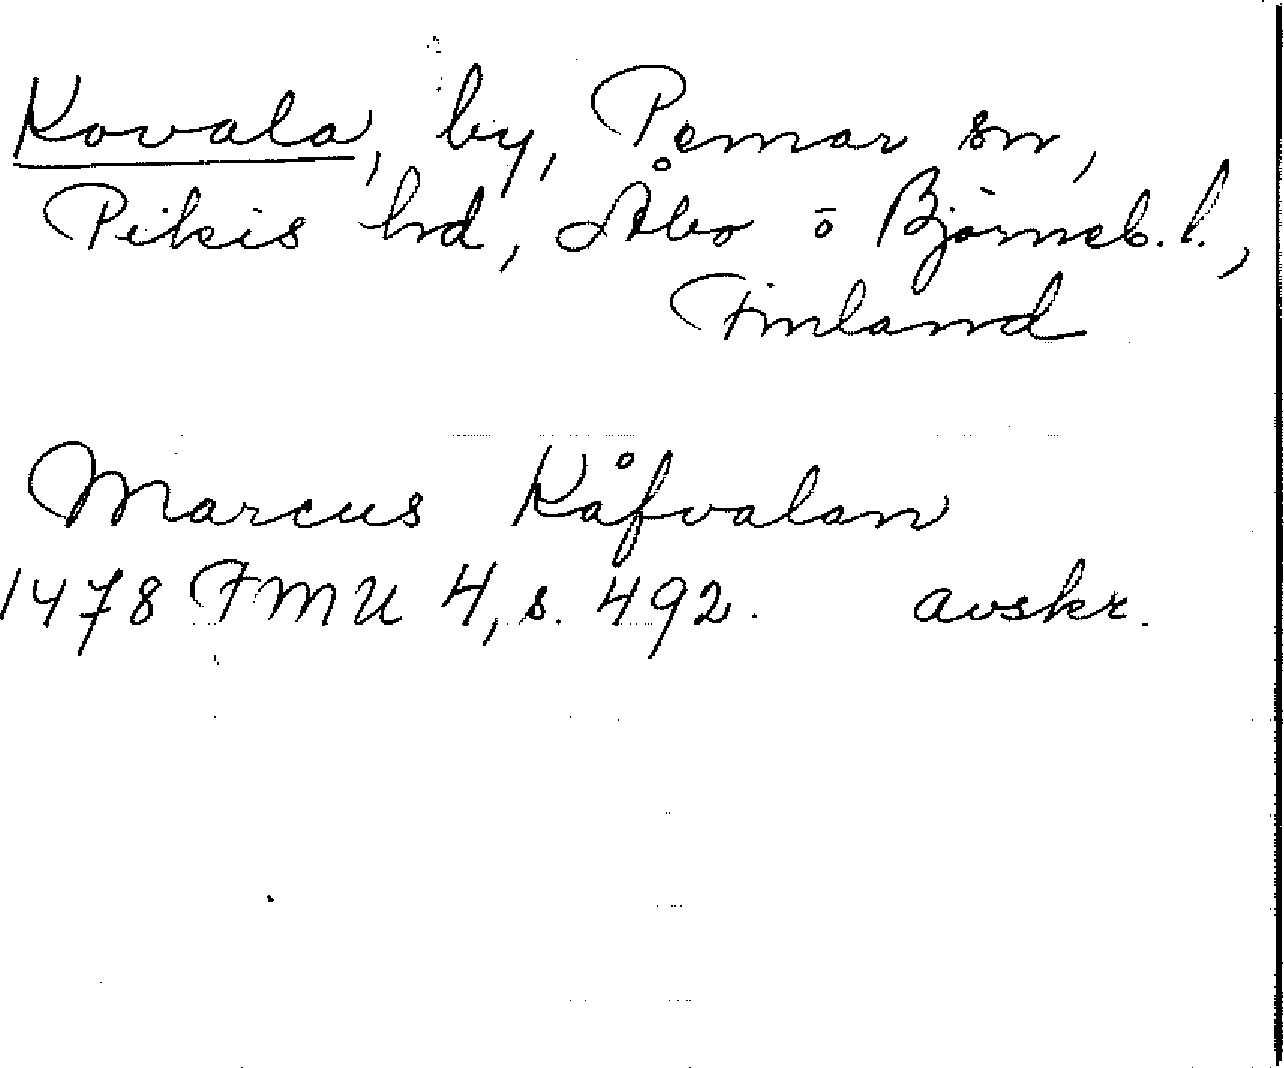 Kovala, by, Pemar sn,
Pikis hd, Åbo o Björneb. l.,
Finland
Marcus Kåfvalan
1478 FMU 4, s. 492. avskr.